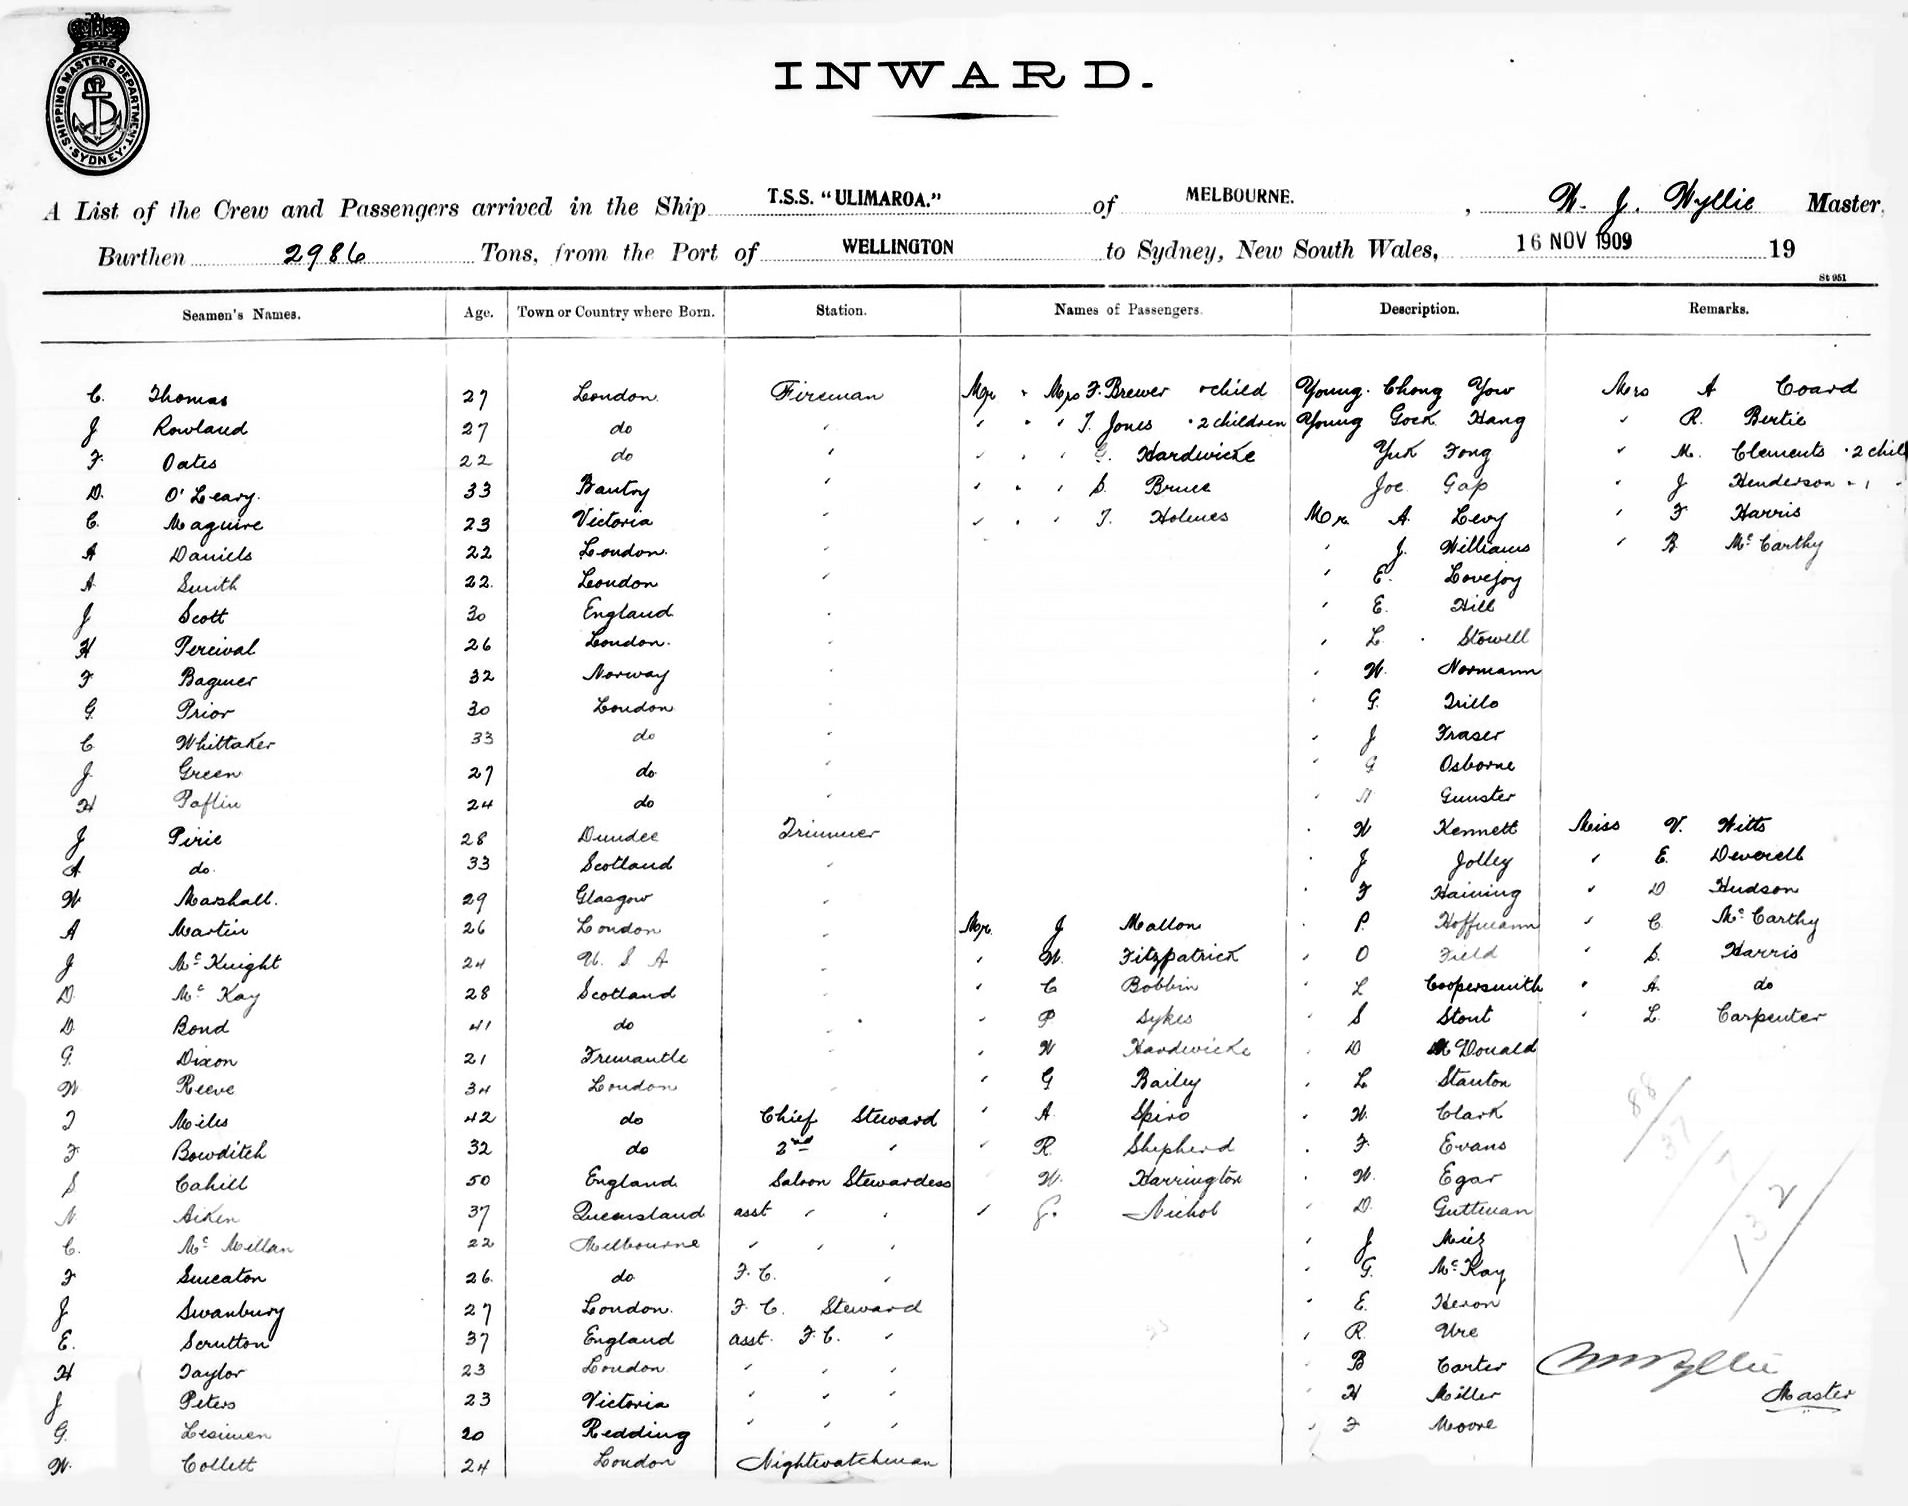 SHIPPING MASTERS DEPARTMENT
SYDNEY
INWARD.
A List of the Crew and Passengers arrived in the Ship T.S.S. "ULIMAROA." of MELBOURNE. , W. J. Wyllie Master,
Burthen 2986 Tons, from the Port of WELLINGTON to Sydney, New South Wales, 16 NOV 1909 19
St 951
Seamen's Names. Age. Town or Country where Born. Station. Names of Passengers. Description. Remarks.
C. Thomas 27 London. Fireman Mr " Mrs F. Brewer " child Young Chong Yow Mrs A Coard
J Rowland 27 do " " " " T. Jones " 2 children Young Gock Hang " R. Bertie
F. Oates 22 do " " " " G. Hardwicke Yuk Fong " M. Clements " 2 chil
D. O'Leary. 33 Bantry " " " " S. Bruce Joe Gap " J Henderson " 1 "
C. Maguire 23 Victoria " " " " T. Holmes Mr. A. Levy " F Harris
A Daniels 22 London. " " J. Williams " B. McCarthy
A. Smith 22. London " " E. Lovejoy
J Scott 30 England " " E. Hill
H Percival 26 London. " " L. Stowell
F Bagner 32 Norway " " W. Normann
G. Prior 30 London " " G. Trillo
C. Whittaker 33 do " " J Fraser
J. Green 27 do " " G Osborne
H Paflin 24 do " " Gunster
J Pirie 28 Dundee Trimmer " W Kennett Miss V. Witts
A do. 33 Scotland " " J Jolley " E. Deverell
W Marshall. 29 Glasgow " " F Haining " D Hudson
A Martin 26 London " Mr. J Mallon " P. Hoffmann " C. McCarthy
J McKnight 24 U. S. A " " W. Fitzpatrick " O Field " S. Harris
D. McKay 28 Scotland " " C Bobbin " L Coopersmith " A. do
D Bond 41 do " " P Sykes " S Stout " L. Carpenter
G. Dixon 21 Fremantle " " W Hardwicke " D McDonald
W Reeve 34 London " " G Bailey " L Stanton
T Miles 42 do Chief Steward " A. Spiro " W. Clark
F Bowditch 32 do 2nd " " R. Shepherd " F. Evans
S Cahill 50 England Saloon Stewardess W. Harrington " W. Egar
N Aiken 37 Queensland asst " " " G. Nichol " D. Guttman
C. McMillan 22 Melbourne " " " " J
F Smeaton 26. do F. C. " " G. McKay
J Swanbury 27 London. F. C. Steward " E. Heron
E. Scrutton 37 England asst. F. C. " " R. Ure
H Taylor 23 London " " " " B Carter
J Peters 23 Victoria " " " " H Miller
G. 20 Redding " " " " F Moore
W. Collett 24 London Nightwatchman
88
37
7
132
Wyllie
Master